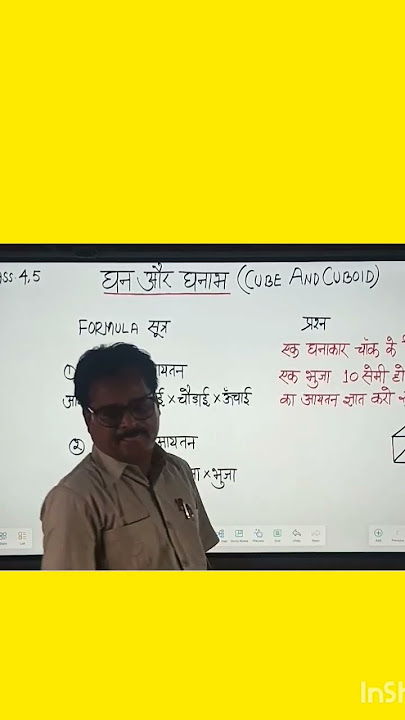 ASS 4,5
घन और घनाभ (CUBE AND CUBOID)
FORMULA सूत्र
①
× चौडाई × ऊँचाई
②
× भुजा
प्रश्न
एक घनाकार चॉक के
एक भुजा 10 सेमी हो
का आयतन ज्ञात करो
InSh